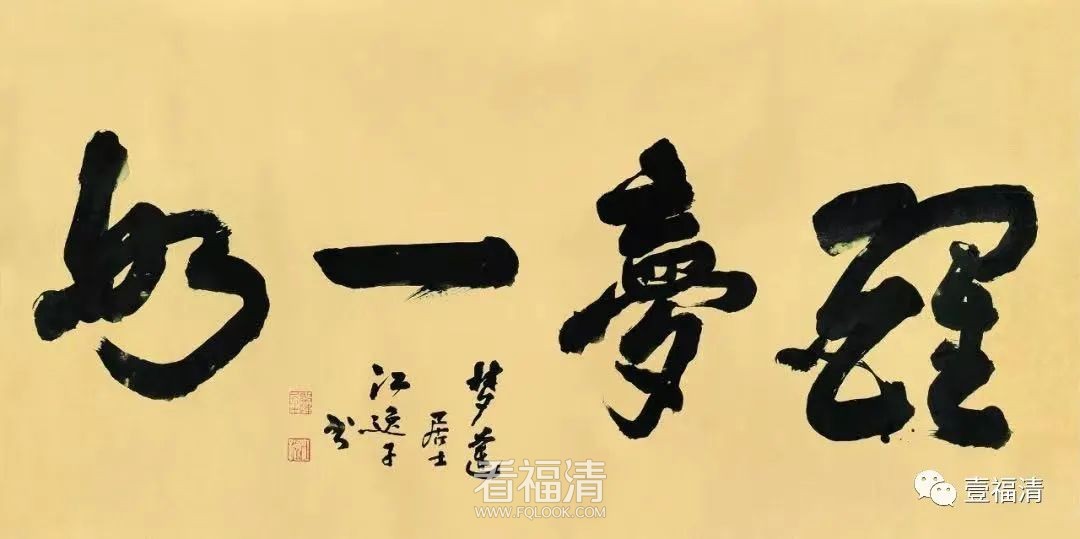 醒夢一如
梦蓮
居士
江逸子
书
看福清
WWW.FQLOOK.COM
壹福清